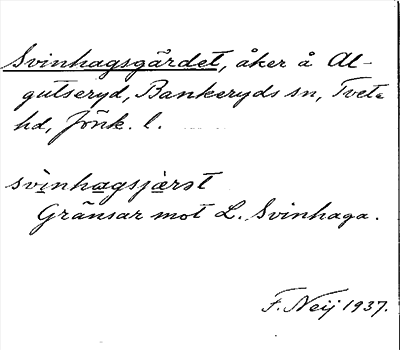 Svinhagsgärdet, åker å Al-
gutseryd, Bankeryds sn, Tveta
hd, Jönk. l.
svinhagsjärst
Gränsar mot L. Svinhaga.
F. Neij 1937.